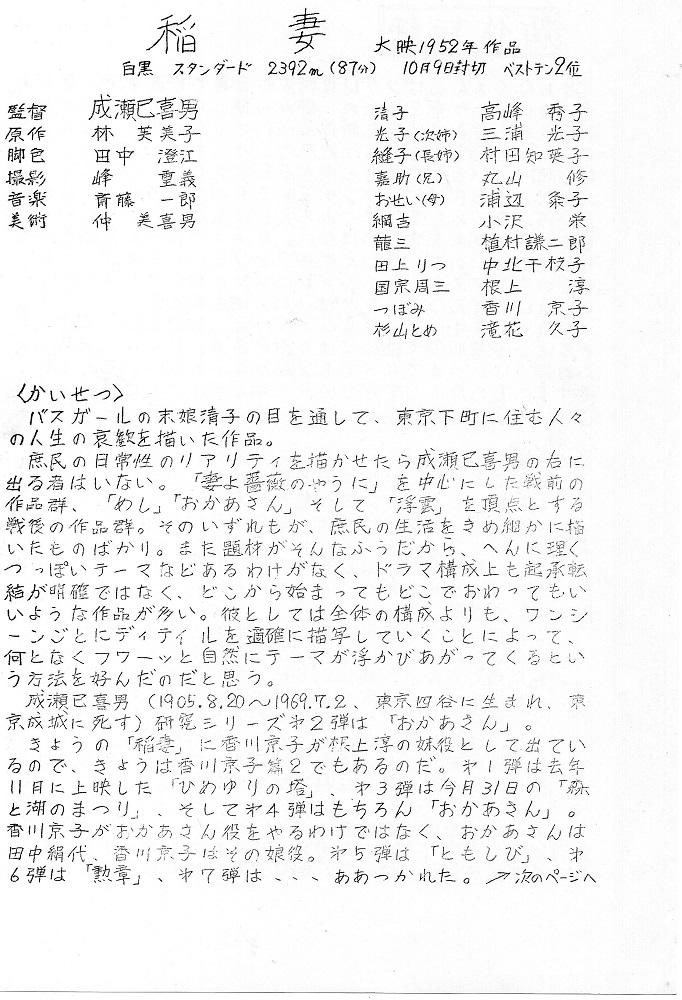 稲妻 大映1952年作品
白黒 スタンダード 2392m(87分) 10月9日封切 ベストテン2位
監督 成瀬巳喜男
原作 林芙美子
脚色 田中澄江
撮影 峰重義
音楽 斉藤一郎
美術 仲美喜男
清子 高峰秀子
光子(次姉) 三浦光子
縫子(長姉) 村田知英子
嘉助(兄) 丸山修
おせい(母) 浦辺粂子
綱吉 小沢栄
龍三 植村謙二郎
田上りつ 中北千枝子
国宗周三 根上淳
つぼみ 香川京子
杉山とめ 滝花久子
〈かいせつ〉
バスガールの末娘清子の目を通して、東京下町に住む人々
の人生の哀歓を描いた作品。
庶民の日常性のリアリティを描かせたら成瀬巳喜男の右に
出る者はいない。「妻よ薔薇のやうに」を中心にした戦前の
作品群、「めし」「おかあさん」そして「浮雲」を頂点とする
戦後の作品群。そのいずれもが、庶民の生活をきめ細かに描
いたものばかり。また題材がそんなふうだから、へんに理く
つっぽいテーマなどあるわけがなく、ドラマ構成上も起承転
結が明確ではなく、どこから始まってもどこでおわってもい
いような作品が多い。彼としては全体の構成よりも、ワンシ
ーンごとにディテイルを適確に描写していくことによって、
何となくフワーッと自然にテーマが浮かびあがってくるとい
う方法を好んだのだと思う。
成瀬巳喜男(1905.8.20〜1969.7.2、東京四谷に生まれ、東
京成城に死す)研究シリーズ第2弾は「おかあさん」。
きょうの「稲妻」に香川京子が根上淳の妹役として出てい
るので、きょうは香川京子篇2でもあるのだ。第1弾は去年
11月に上映した「ひめゆりの塔」、第3弾は今月31日の「森
と湖のまつり」、そして第4弾はもちろん「おかあさん」。
香川京子がおかあさん役をやるわけではなく、おかあさんは
田中絹代、香川京子はその娘役。第5弾は「ともしび」、第
6弾は「勲章」、第7弾は、、、ああつかれた。→次のページへ